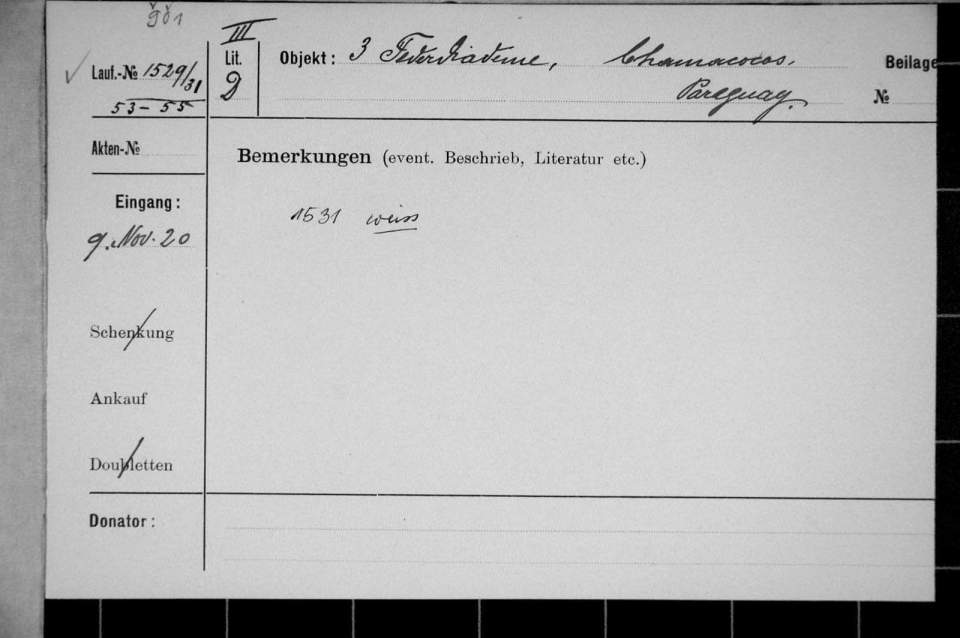 III
Lauf.-№ 1529/31
53 – 55
Lit.
D
Objekt: 3 Federdiademe, Chamacocos.
Paraguay.
Beilage
№
Akten-№
Bemerkungen (event. Beschrieb, Literatur etc.)
Eingang:
9. Nov. 20
1531 weiss
Schenkung
Ankauf
Doubletten
Donator: